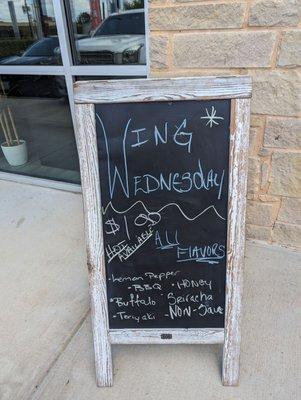 Wing
Wednesday
$1.00
Hot
Available
All
Flavors
• Lemon Pepper
• BBQ • Honey
• Buffalo Sriracha
• Teriyaki • Non-Sauce